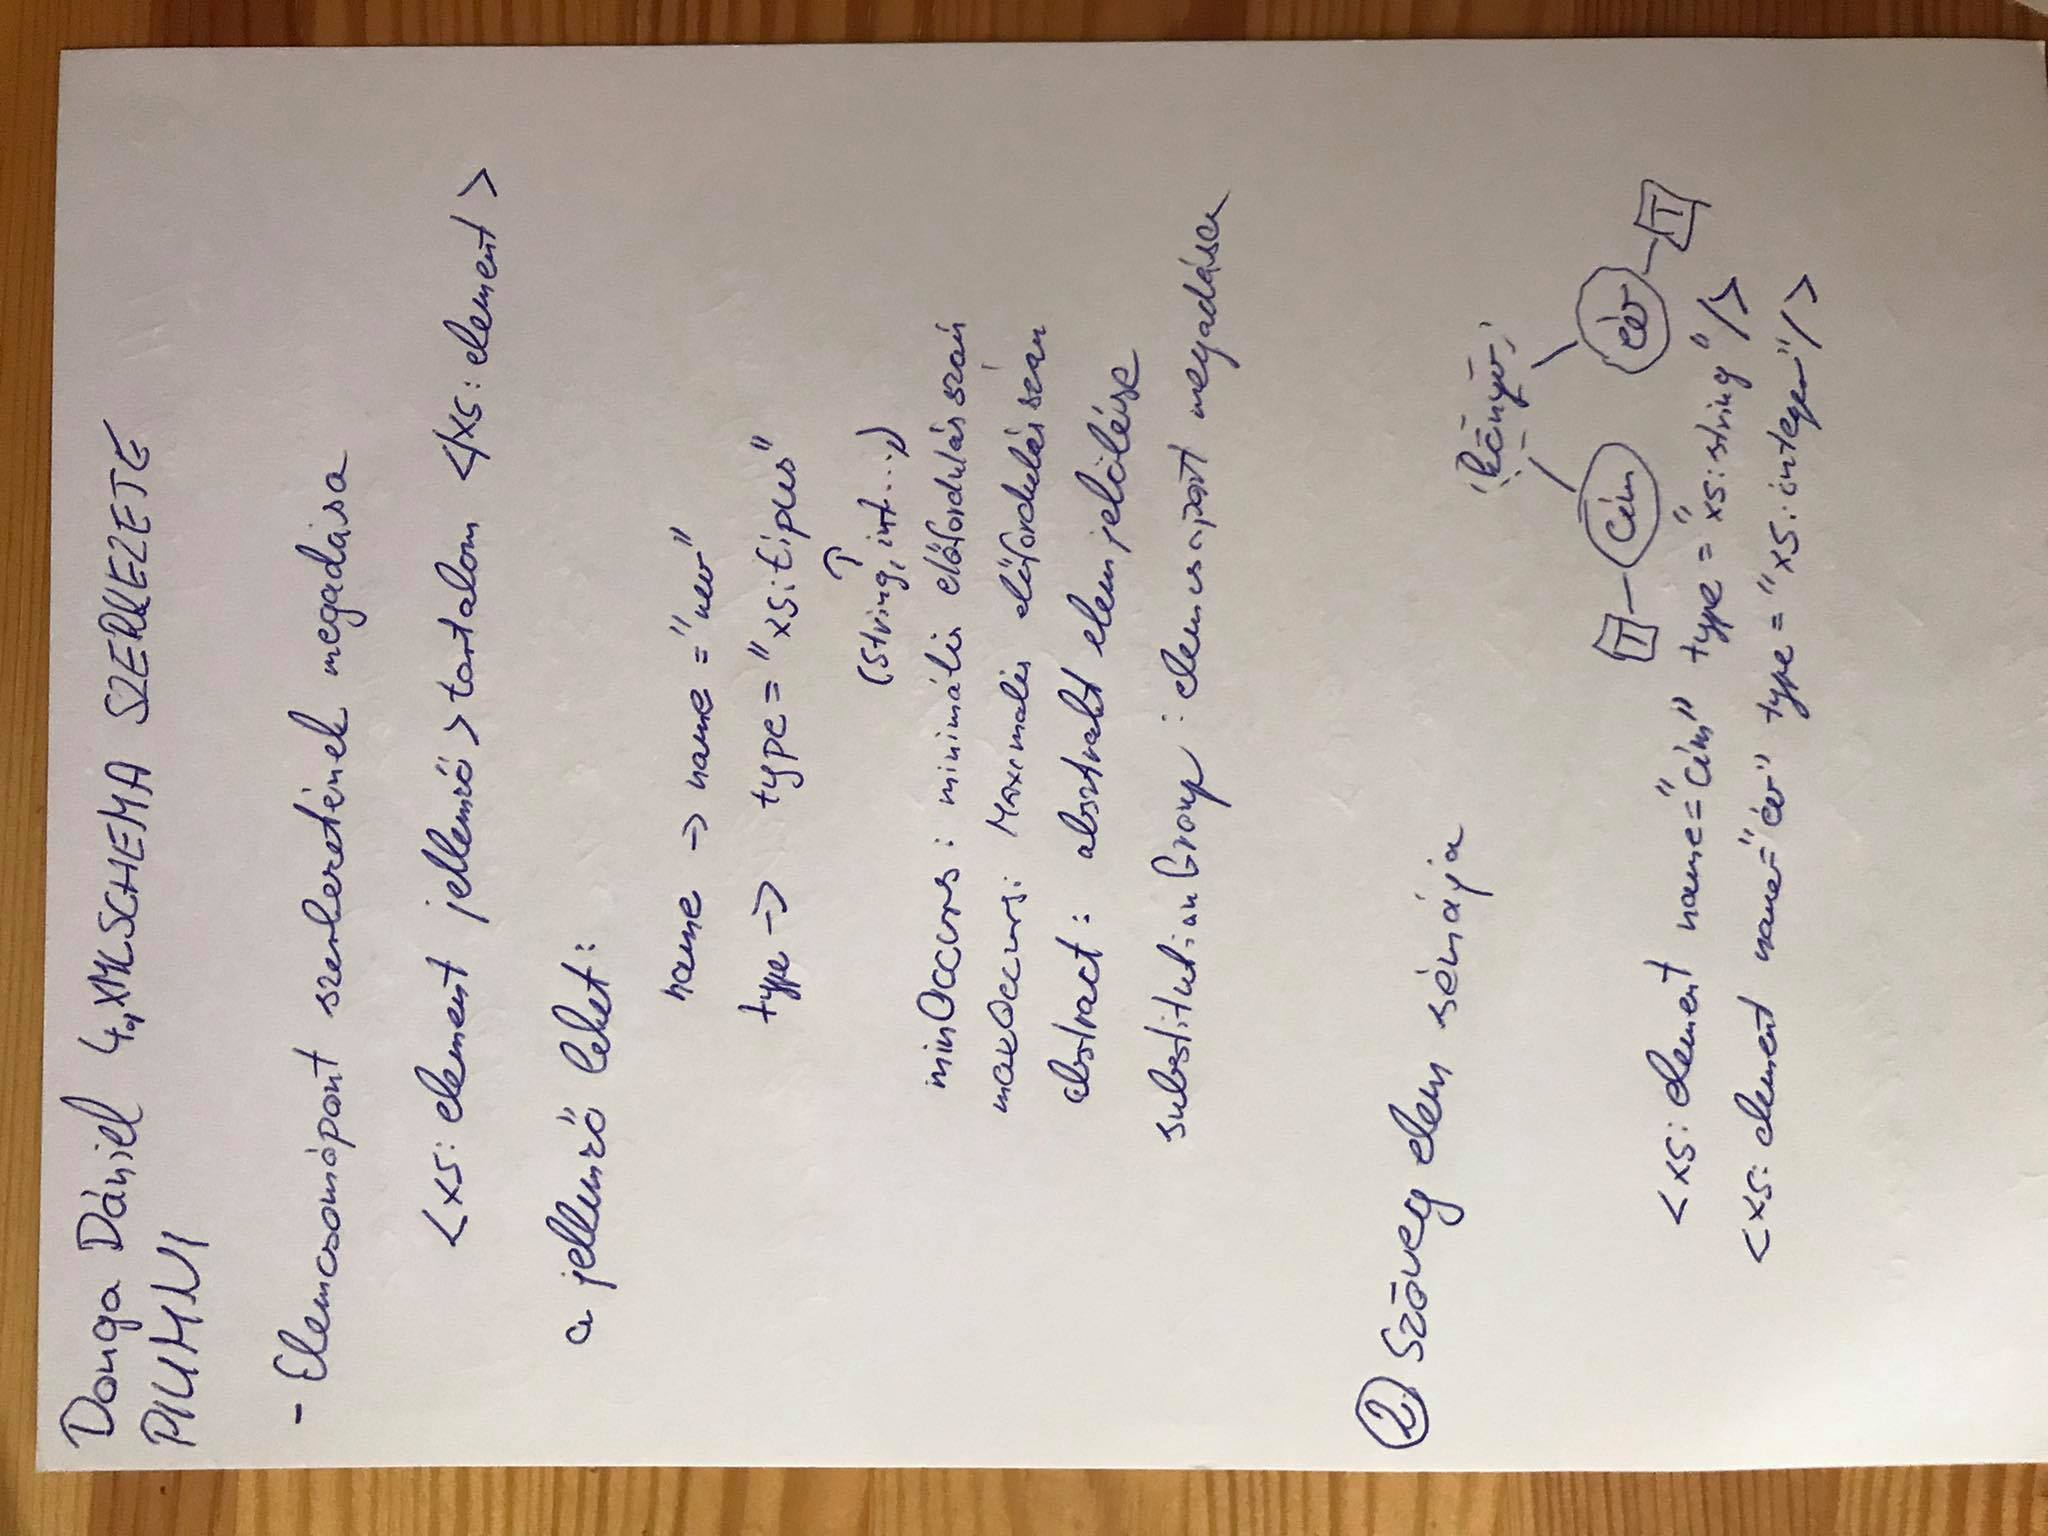 Donga Dániel 4., XMLSCHEMA SZERKEZETE
- Elemcsomópont szerkezetének megadása
<xs:element jellemző>tartalom </xs:element>
a jellemző lehet:
name -> name="név"
type -> type="xs:típus"
(string, int...)
minOccurs: minimális előfordulás szám
maxOccurs: Maximális előfordulás szám
abstract: absztrakt elem jelölése
substitutionGroup: elemcsoport megadása
2. Szöveg elem sémája
könyv
cím
év
T
T
<xs:element name="cím" type="xs:string"/>
<xs:element name="év" type="xs:integer"/>